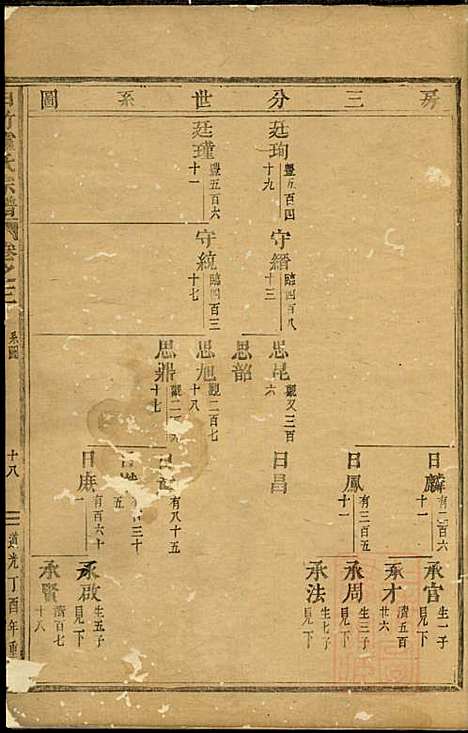 房三分世系圖
廷珣
豐五百四十九
廷瑾
豐五百六十一
守縉
臨四百八十三
守統
臨四百三十七
思昆
觀又三百六
思韶
思旭
觀二百七十八
思鼎
觀二百六十七
日麟
日鳳
有三百五十一
日昌
有八十五
日庶
有百六十一
承官
生一子見下
承才
濟五百廿六
承周
生三子見下
承法
生七子見下
承啟
生五子見下
承賢
濟百七十八
氏宗譜
卷之二
系圖
十八
道光丁酉年重